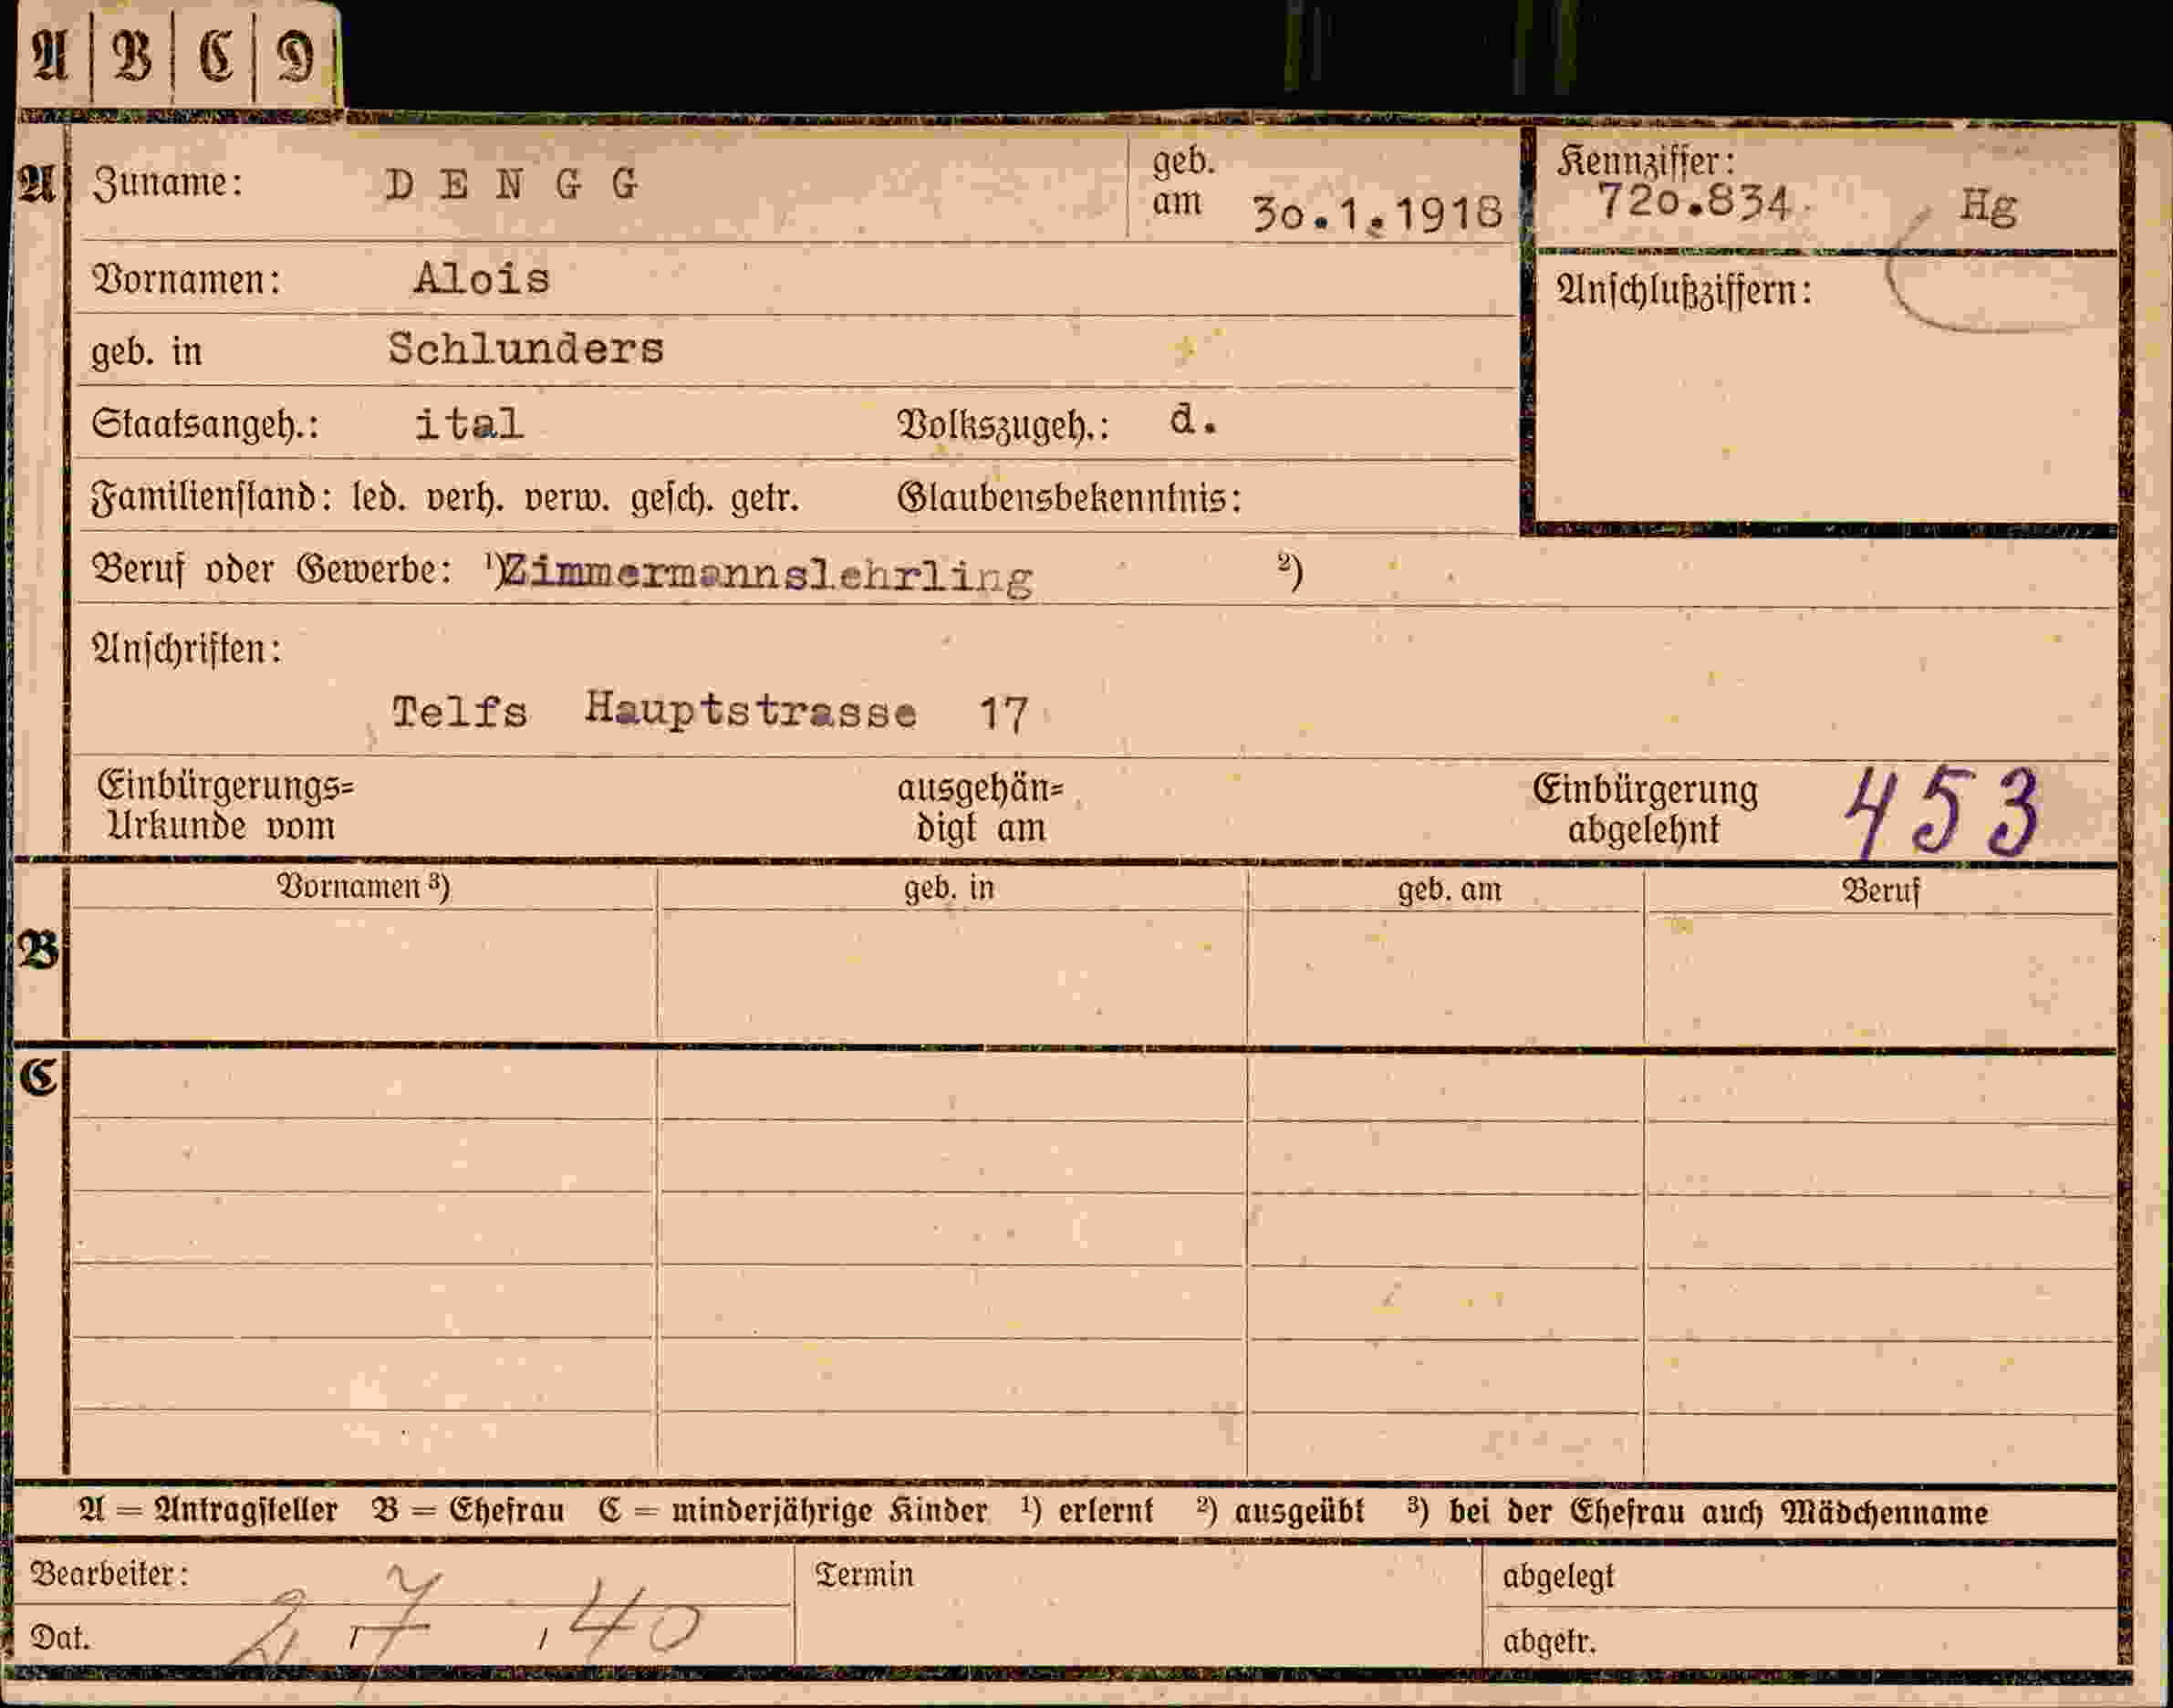 A | B | C | D
A Zuname: DENGG geb. am 30.1.1918 Kennziffer: 720.834 Hg
Vornamen: Alois Anschlußziffern:
geb. in Schlunders
Staatsangeh.: ital Volkszugeh.: d.
Familienstand: led. verh. verw. gesch. getr. Glaubensbekenntnis:
Beruf oder Gewerbe: ¹)Zimmermannslehrling ²)
Anschriften:
Telfs Hauptstrasse 17
Einbürgerungs= ausgehän= Einbürgerung 453
Urkunde vom digt am abgelehnt
Vornamen ³) geb. in geb. am Beruf
B
C
A = Antragsteller B = Ehefrau C = minderjährige Kinder ¹) erlernt ²) ausgeübt ³) bei der Ehefrau auch Mädchenname
Bearbeiter: Termin abgelegt
Dat. 2,7,40 abgetr.